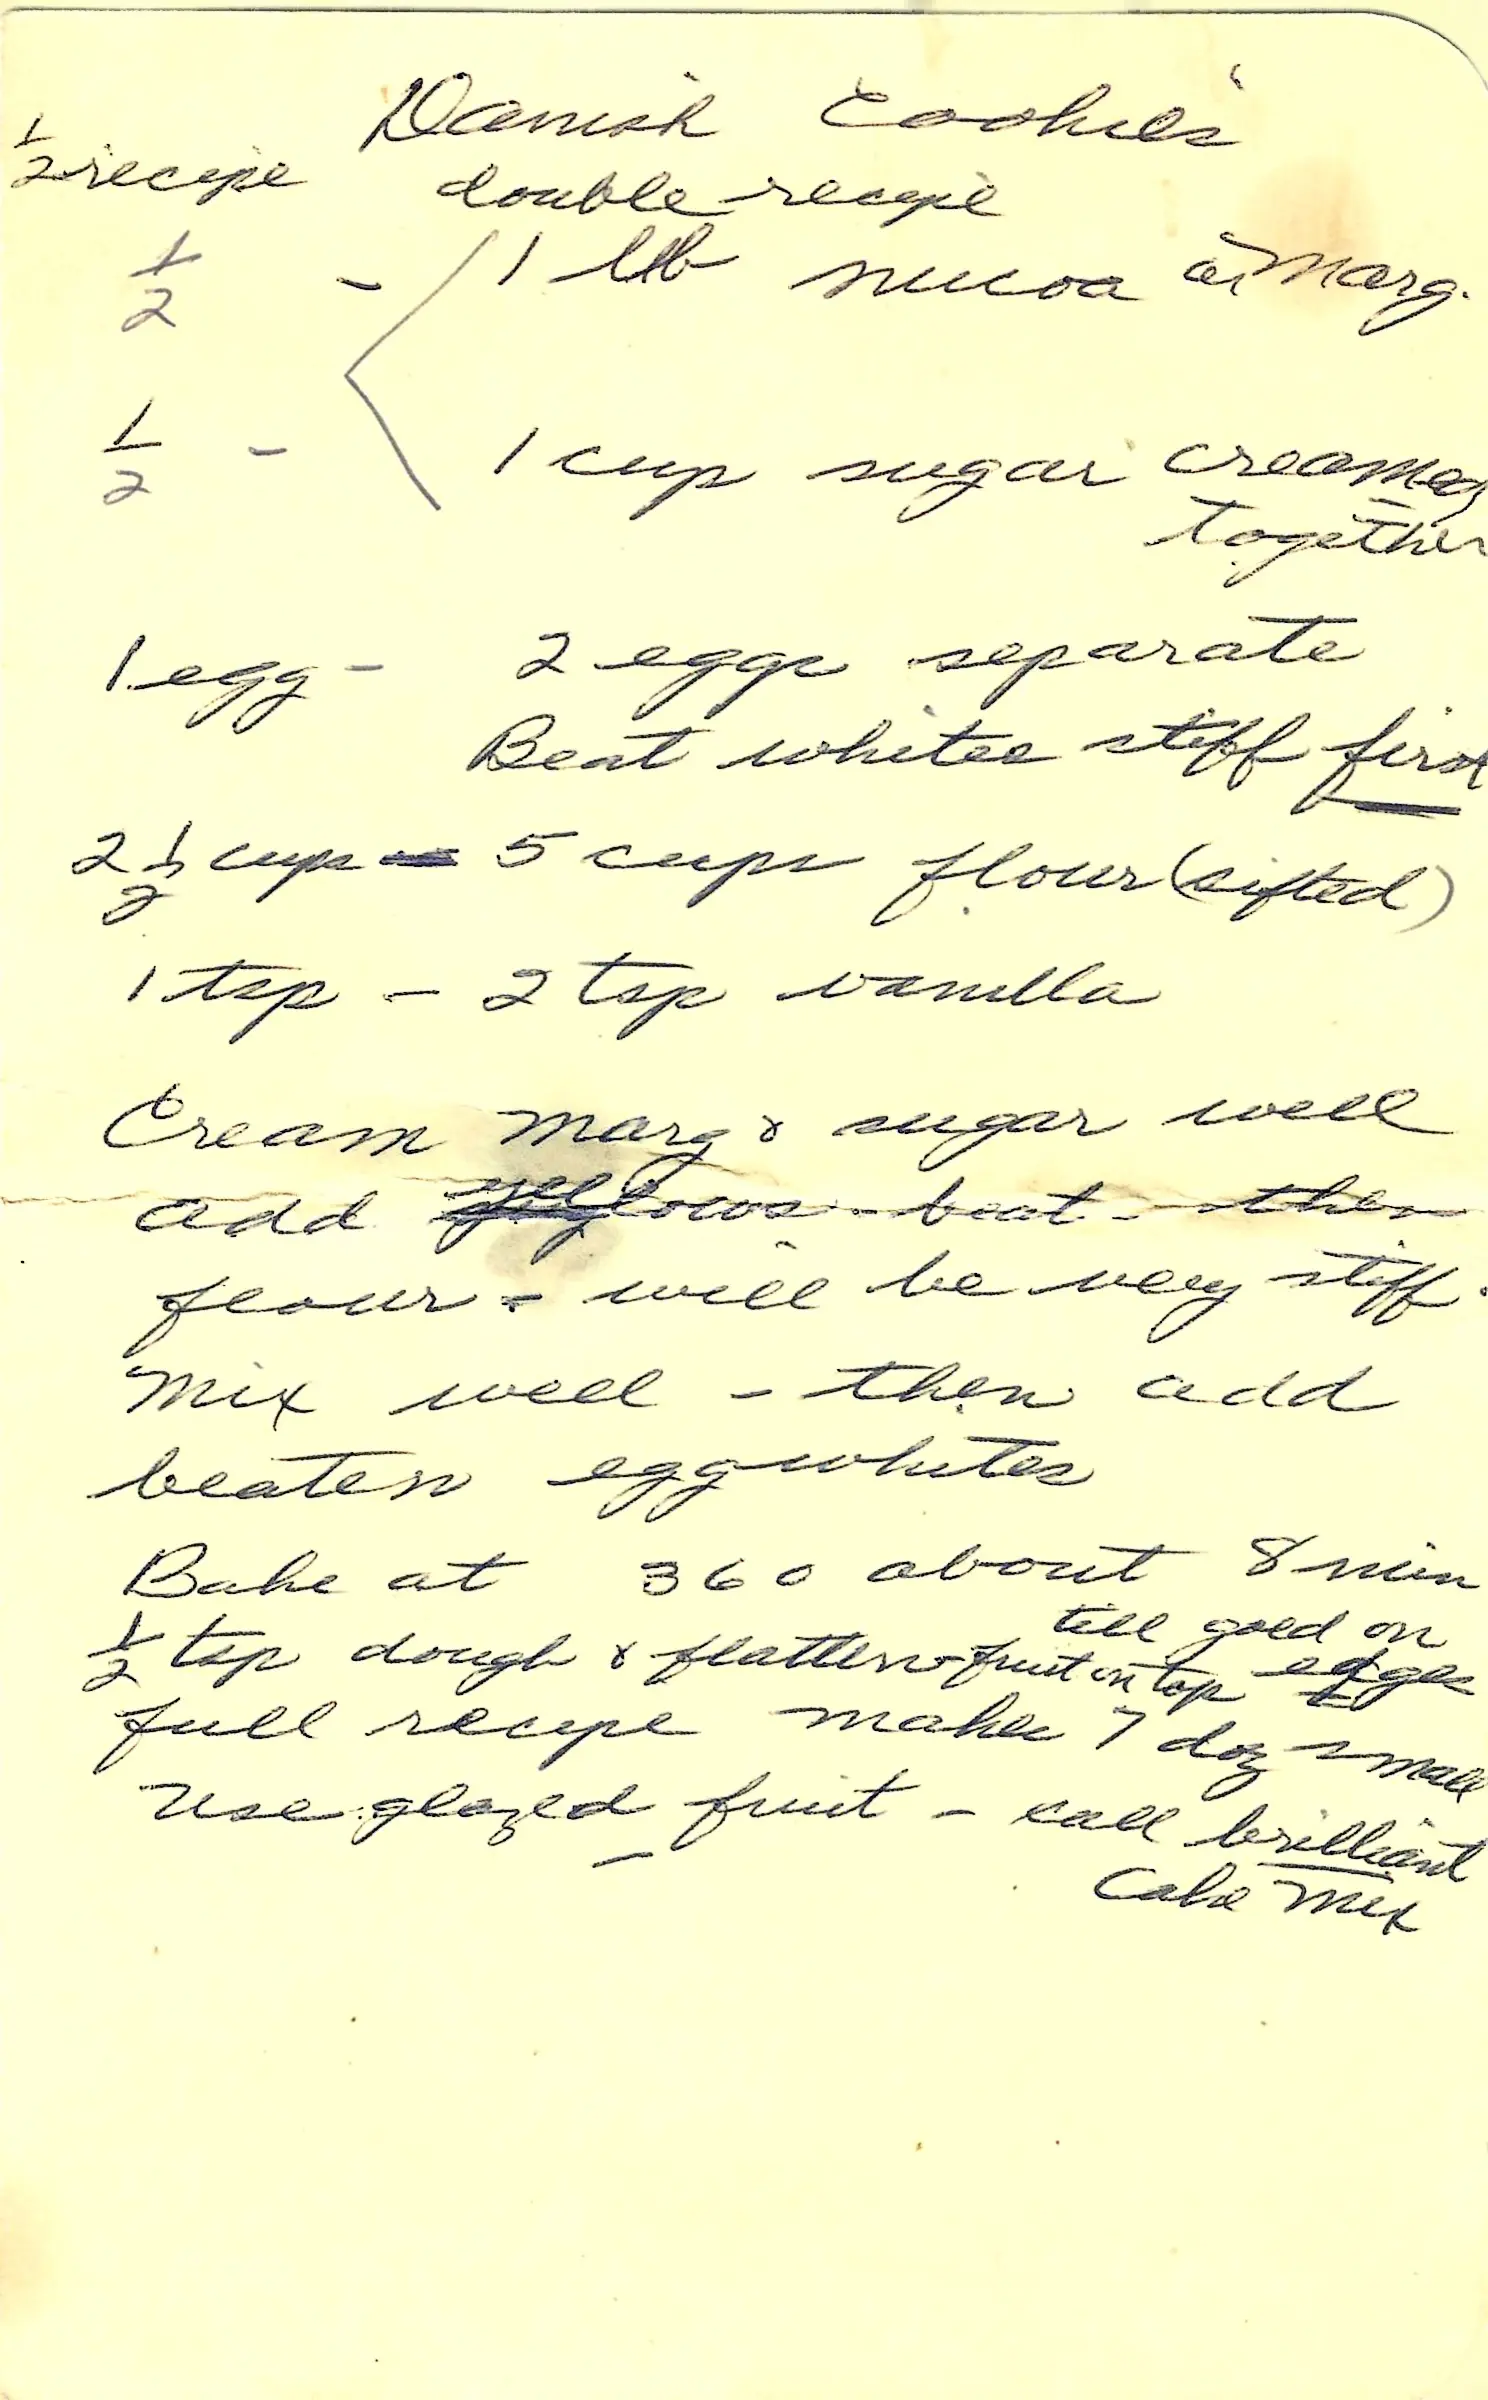 Danish Cookies
1/2 recipe double recipe
1/2 - 1 lb nucoa or Marg.
1/2 - 1 cup sugar creamed
together
1 egg - 2 eggs separate
Beat whites stiff first
2 1/2 cups - 5 cups flour (sifted)
1 tsp - 2 tsp vanilla
Cream Marg & sugar well
add yellows - beat - then
flour - will be very stiff.
Mix well - then add
beaten egg whites
Bake at 360 about 8 min
till gold on
edges
1/2 tsp dough & flatten - fruit on top
full recipe makes 7 doz small
use glazed fruit - call brilliant
Cake Mix